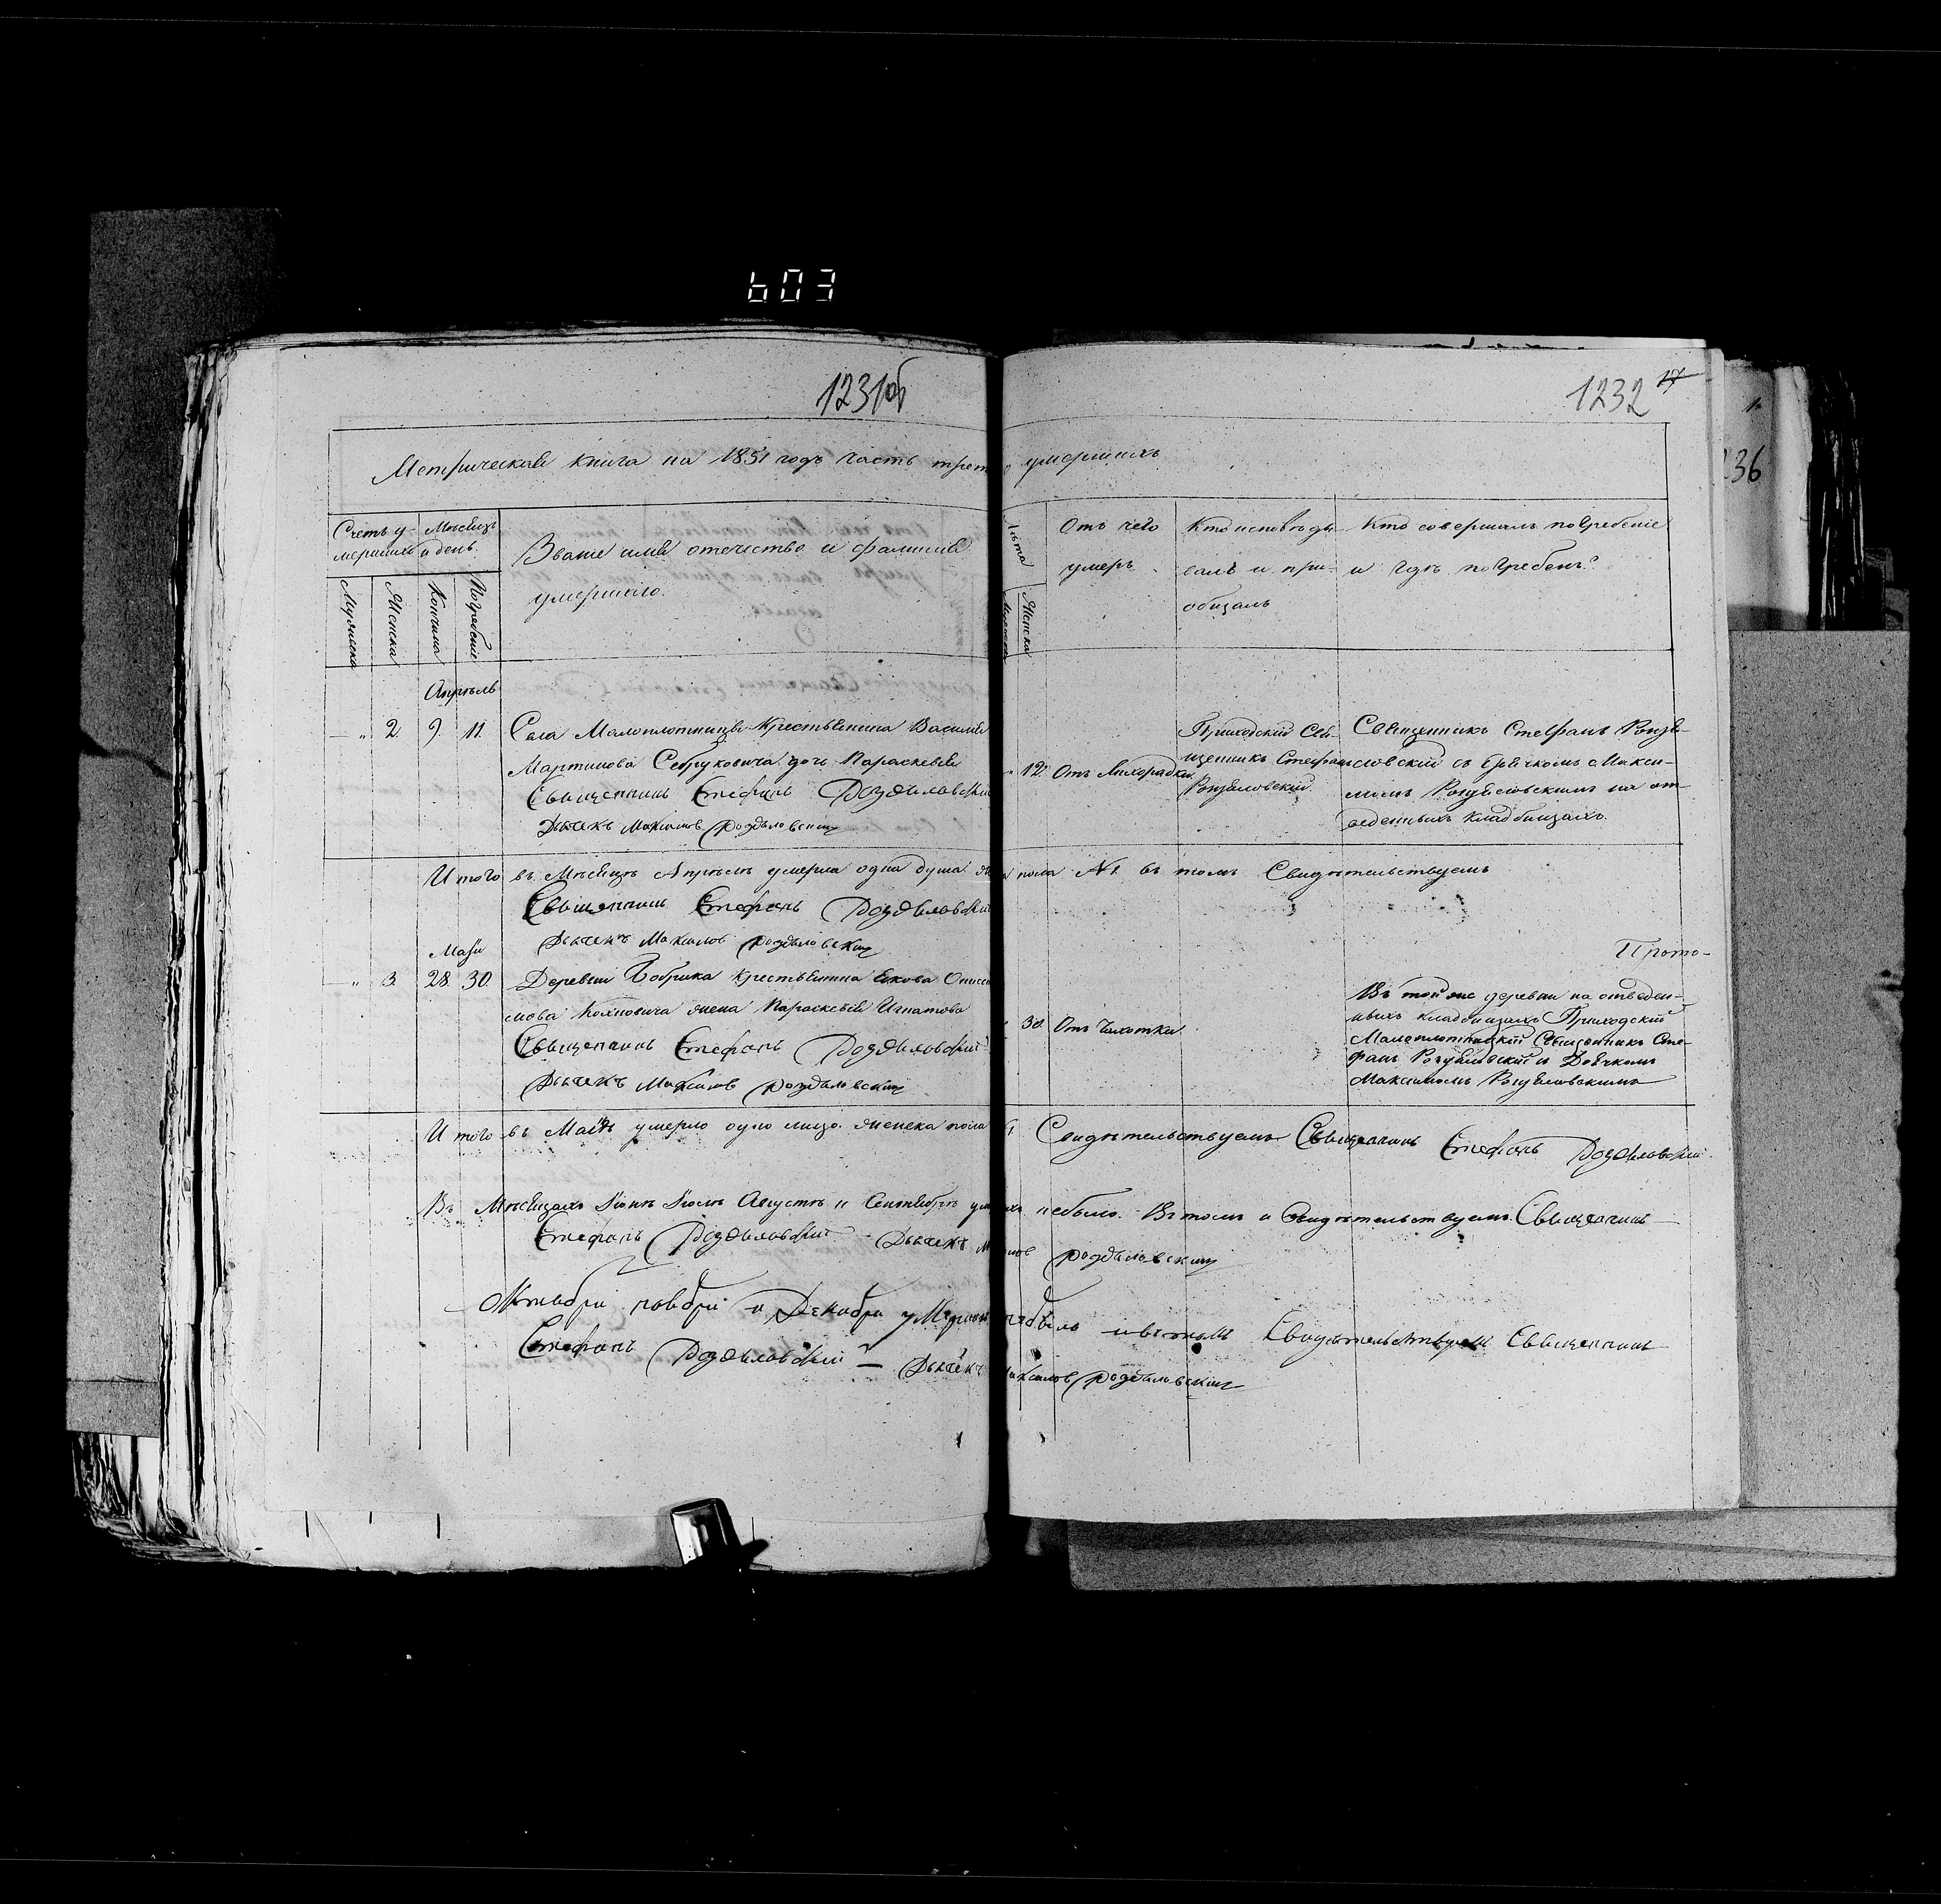 603
1231об
1232 17
136
Метрическая книга на 1851 годъ часть трет о умершихъ
Счетъ у- Мѣсяцъ
мершихъ и день.
Званіе имя отечество и фамилія
умершаго.
Мужеска
Женска
Кончина
Погребеніе
Лѣта
Женска
Отъ чего
умеръ
Кто исповѣды-
валъ и при-
общалъ
Кто совершалъ погребеніе
и гдѣ погребенъ?
Апрѣль
— „ 2 9 11. Села Малоплотницы Крестьянина Василія
Мартинова дочь Параскевія
Священникъ Стефанъ Роздяловскій
Дьячекъ Максимъ Роздяловский
12. Отъ Лихорадки
Приходскій Свя-
щенникъ Стефанъ
Роздяловскій.
Священникъ Стефанъ Роздя-
ловскій съ Дьячкомъ Макси-
момъ Роздяловскимъ на от-
веденныхъ кладбищахъ.
Итого въ Мѣсяцѣ Апрѣлѣ умерла одна душа же а пола №1. въ томъ Свидѣтельствуемъ
Священникъ Стефанъ Роздяловскій
Дьячекъ Максимъ Роздяловский
Прото-
Маія
„ 3. 28. 30. Деревни Бобрика крестьянина Якова Ониси
мова жена Параскевія Игнатова
Священникъ Стефанъ Роздяловскій
Дьячекъ Максимъ Роздяловский
30. Отъ Чахотки
Въ той же деревни на отведен-
ныхъ кладбищахъ Приходскій
Малоплотницкій Священникъ Сте-
фанъ Роздяловскій и Дьячкомъ
Максимомъ Роздяловскимъ
Итого въ Маіѣ умерло одно лицо женска пола 1. Свидѣтельствуемъ Священникъ Стефанъ Роздяловскій.
Въ Мѣсяцахъ Іюнѣ Іюлѣ Августѣ и Сентябрѣ ум ихъ небыло. Въ томъ и Свидѣтельствуемъ Священникъ
Стефанъ Роздяловскій Дьячекъ М имъ Роздяловский
Октября ноября и Декабря умерших небыло ивътомъ Свидѣтельствуемъ Священникъ
Стефанъ Роздяловскій — Дьячекъ аксимъ Роздяловский